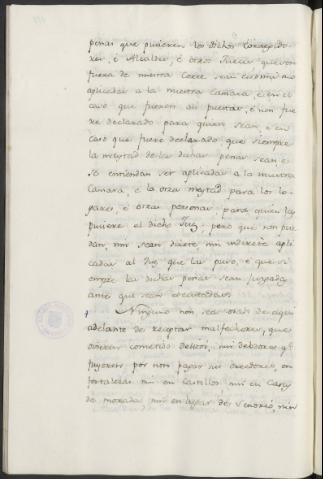 penas que pusieren los dichos Corregido-
res, ó Alcaldes, ó otros Jueces qualesquier
fuera de nuestra Corte sean
aplicadas a la nuestra Camara, é en el
caso que fueren puestas, é non fue
re declarado para quien sean, é en
caso que fuere declarado que siempre
la meytad de las dichas penas sean é
se entiendan ser aplicadas a la nuestra
Camara, é la otra meytad para los lo-
gares, é otras personas para quien las
pusiere el dicho Juez pero que non pue
dan, nin sean directe, nin indirecte apli
cadas al Juez que las puso, é que si
empre las dichas penas sean juzgadas
ante que sean executadas.
Ninguno non sea osado de aqui
adelante de receptar malfechores, que
ovieren cometido delitos, nin debdores q.
fuyeren por non pagar sus acreedores, en
fortalezas nin en Castillos, nin en Casas
de morada nin en lugar de Señorio, nin